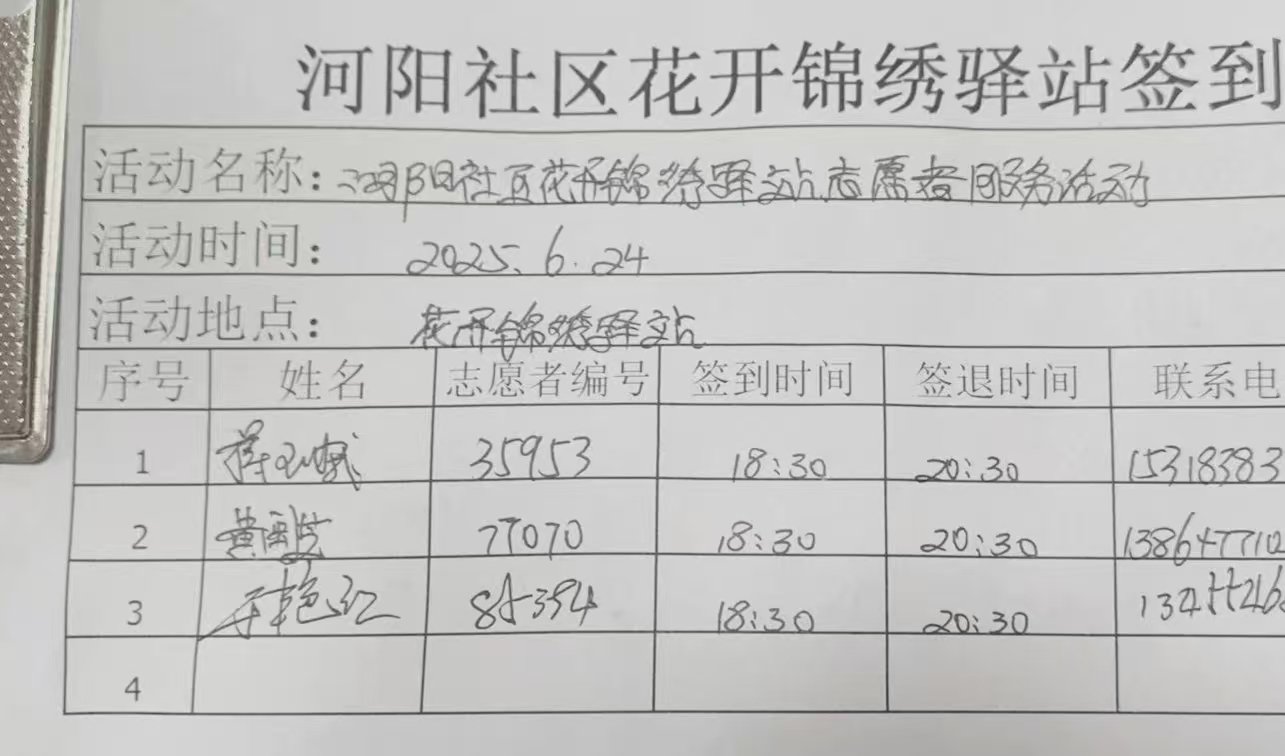 河阳社区花开锦绣驿站签到
活动名称：河阳社区花开锦绣驿站志愿者服务活动
活动时间： 2025.6.24
活动地点： 花开锦绣驿站
序号 姓名 志愿者编号 签到时间 签退时间 联系电
1 35953 18:30 20:30 15318383
2 黄 77070 18:30 20:30 138647710
3 艳红 85394 18:30 20:30
4